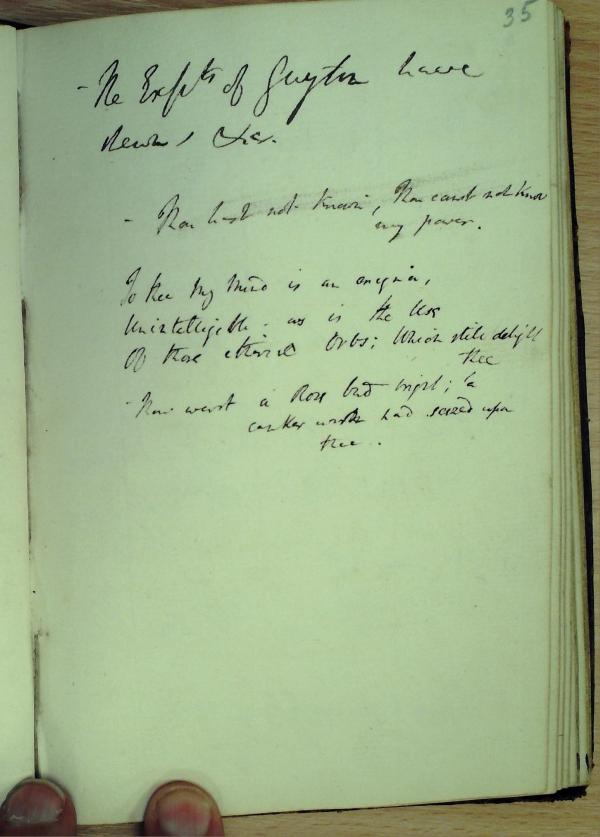 35
- The Expts of Guyton have
shewn, &c.
- Thou hast not known, Thou canst not know
my power.
To thee My Mind is an enigma,
Unintelligible; as is the Use
Of those etherial Orbs; Which still delight
thee
- Thou wert a Rose bud bright; a
canker worm had seized upon
thee.